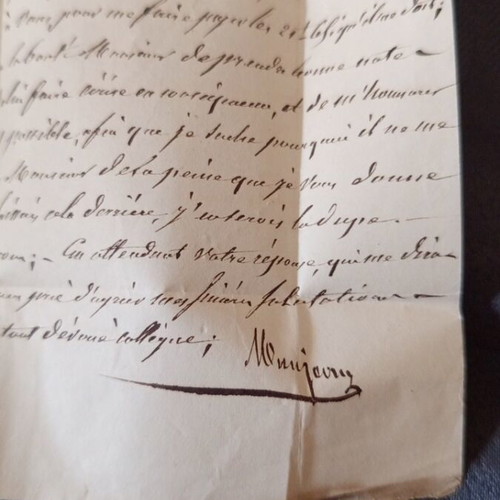 vous pour me faire payer les 21
la bonté Monsieur de prendre bonne note
faire écrire en conséquence, et de m'honorer
possible, afin que je sache pourquoi il ne me
Monsieur de la peine que je vous donne
cela derrière, j'en serois la dupe. —
En attendant votre réponse, qui me dira
prié d'agréer mes sincères salutations —
tout dévoué collègue;